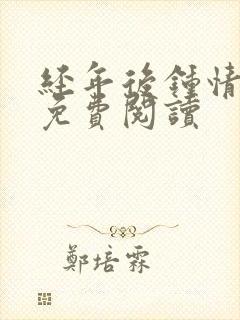 經年後鍾情
免費閱讀
鄭培霖